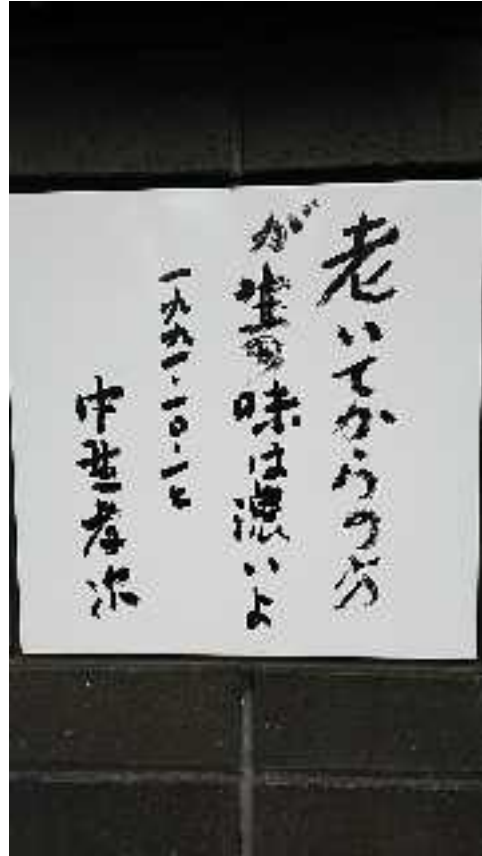 老いてからの方
が生の味は濃いよ
一九九一・一〇・一七
中野孝次